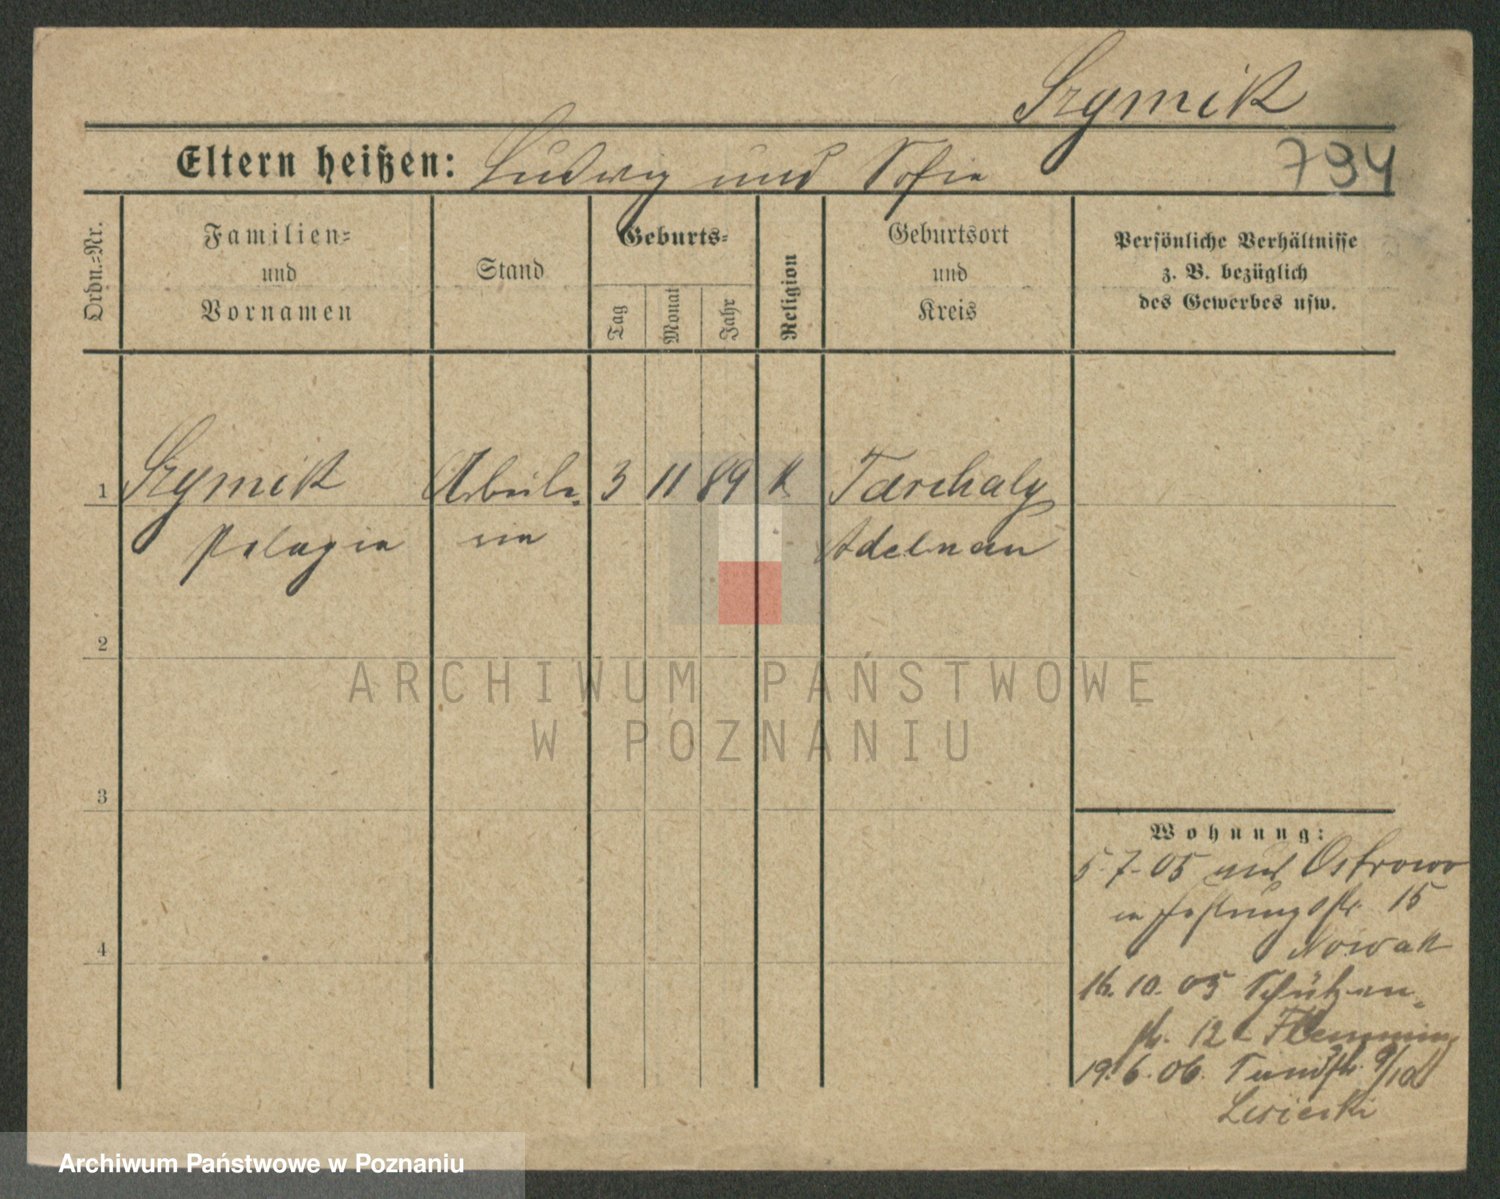 Szymik
Eltern heißen: Ludwig und Sofie
794
Ordn.-Nr.
Familien-
und
Vornamen
Stand
Geburts-
Tag
Monat
Jahr
Religion
Geburtsort
und
Kreis
Persönliche Verhältnisse
z. B. bezüglich
des Gewerbes usw.
1 Szymik Arbeite- 3 11 89 K Tarchaly
Pelagia rin Adelnau
2
3
4
Wohnung:
5.7.05 aus Ostrowo
15
Nowak
16.10.05 Schützen-
str. 12 Flemming
19.6.06. 9/10
ARCHIWUM PAŃSTWOWE
W POZNANIU
Archiwum Państwowe w Poznaniu